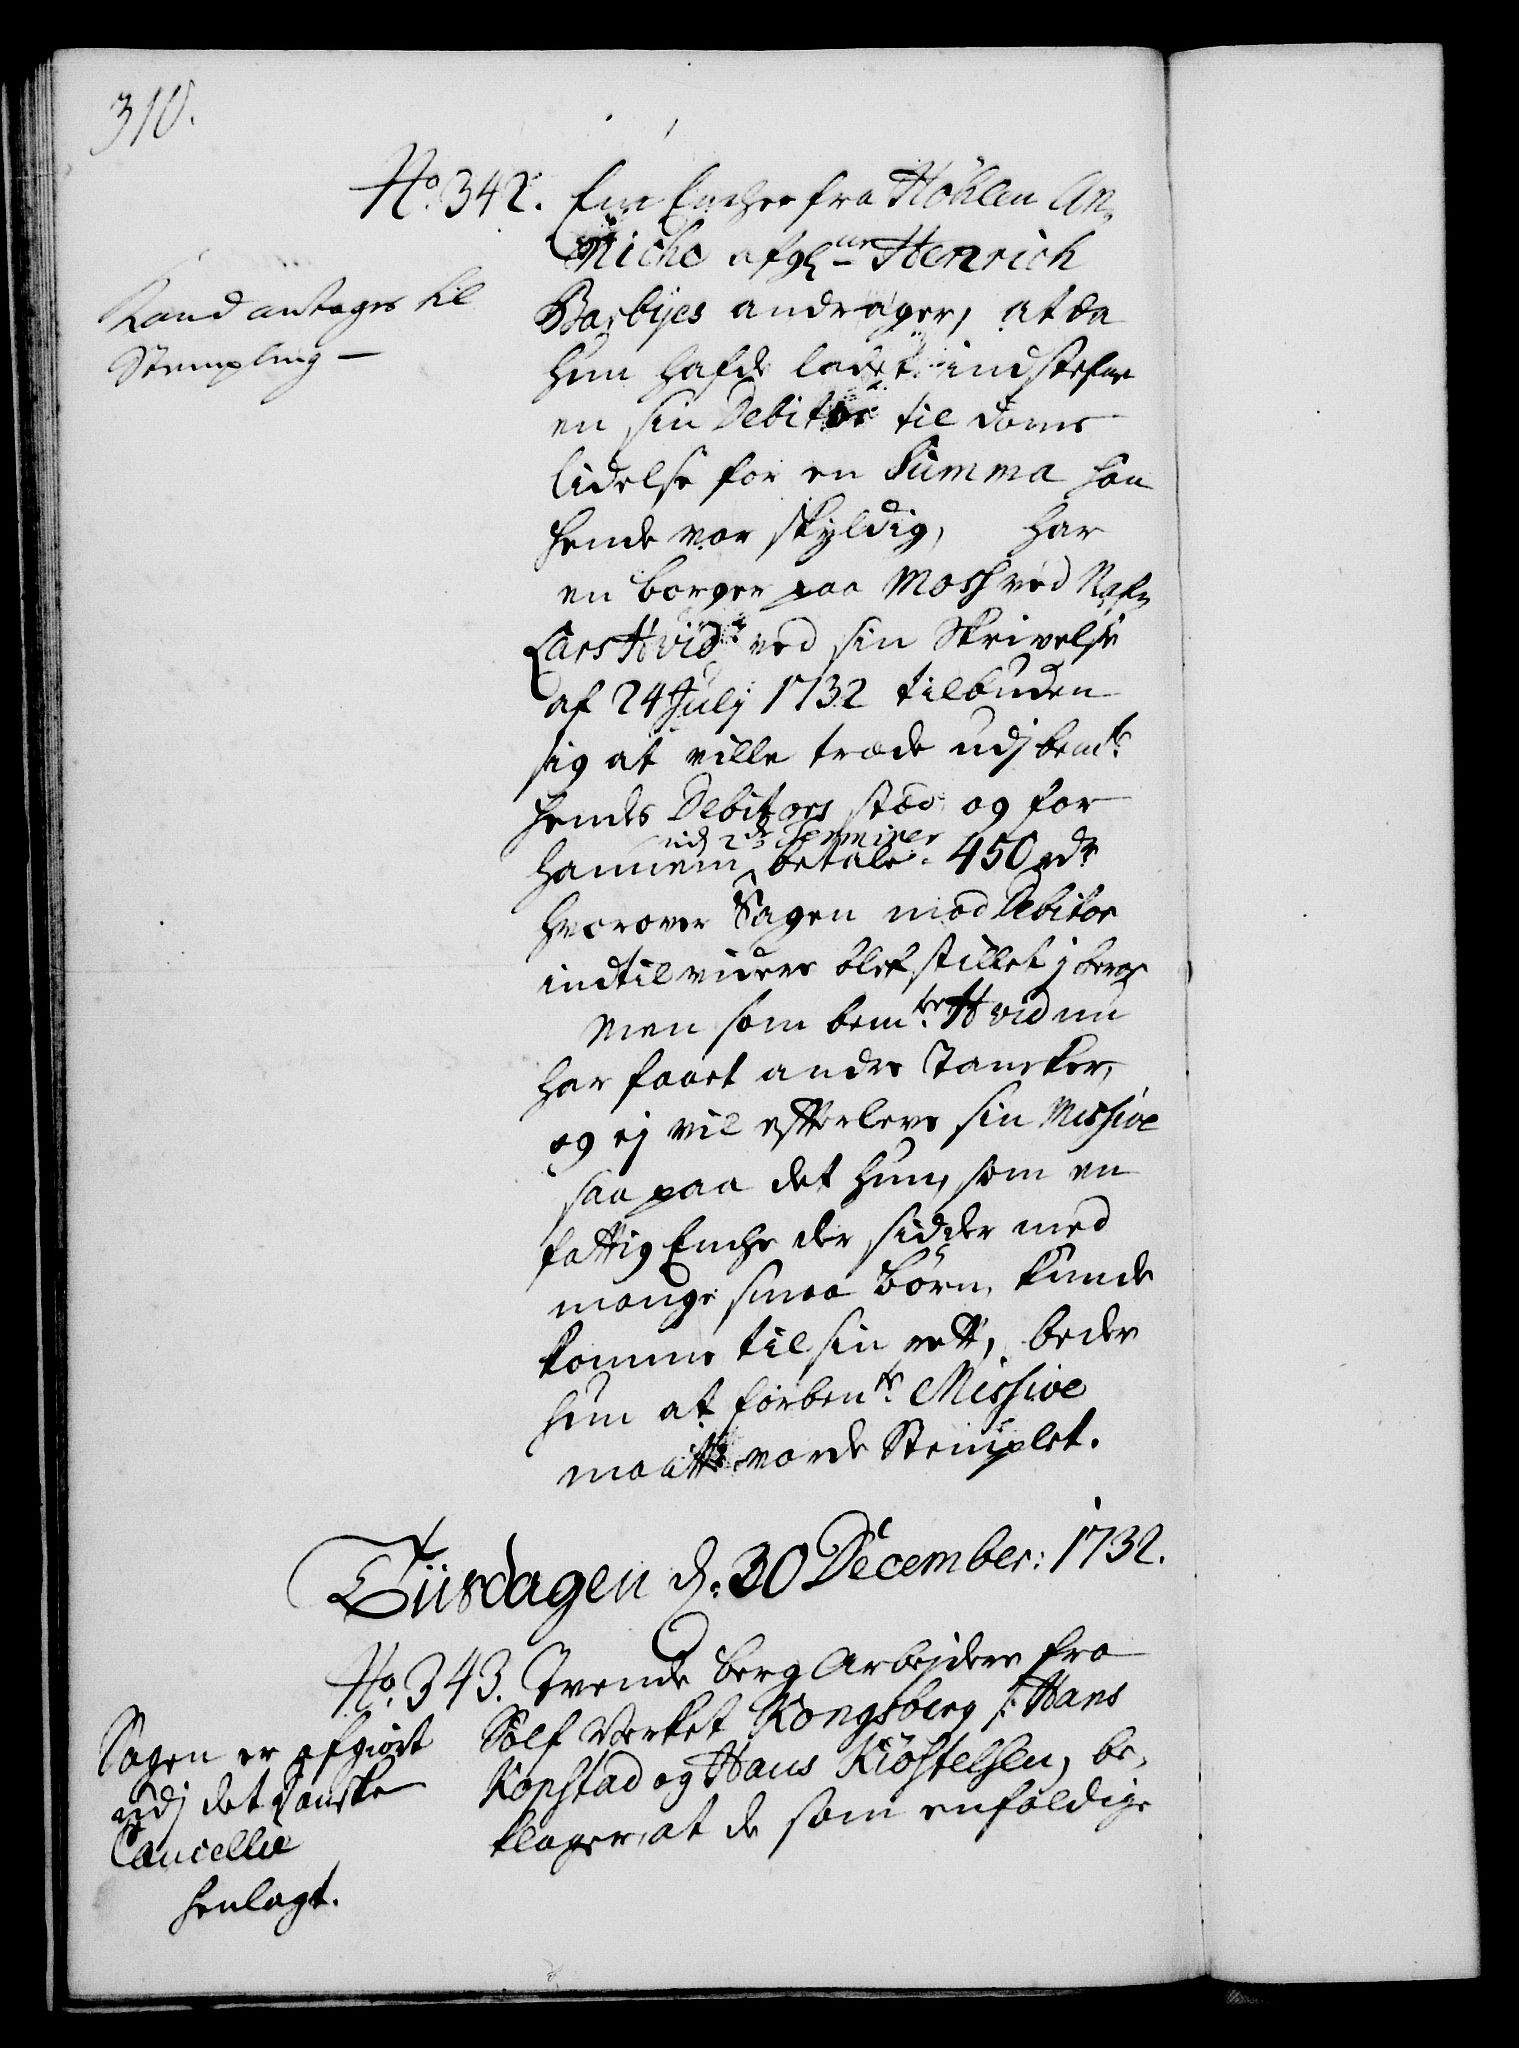 310.
No. 342. Een Enche fra Höhlen An-
niche afgl. Henrich
Barbÿes andrager, at da
Kand antages til
Stempling —
hun hafde ladet indstefne
en sin Debitor til doms
lidelse for en Summa han
hende var skyldig, har
en borger paa Moss ved Nafn
Lars Hvid ved sin Skrivelse
af 24 July 1732 tilbuden
sig at ville træde udj bemte
hendes Debitors stæd og for
hannem udj 2de Terminer betale 450 rdr
hvorover Sagen mod Debitor
indtil videre blef stillet j beroe
Men som bemte Hvid nu
har faaet andre Tancker,
og ej vil efterleve sin Missive
saa paa det hun, som en
fattig Enche der sidder med
mange smaa Börn, kunde
komme til sin rett, beder
hun at forbente Missive
maatte vorde Stemplet.
Tiirsdagen d. 30 December: 1732.
No. 343. Tvende berg Arbejdere fra
Sölf Verket Kongsberg /: Hans
Kopstad og Hans Kiöstelsen, be-
klager, at de som enfoldige
Sagen er afgiort
udj det danske
Cancellie
henlagt.